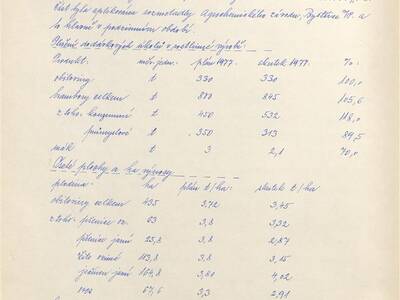 část byla aplikována rozmetadly Agrochemického závodu, Bystřice n/P. a
to hlavně v podzimním období
Plnění dodávkových úkolů v rostlinné výrobě:
Produkt: měr. jedn. plán 1977. skutek 1977. %.
obiloviny t 330 330 100,0
brambory celkem t 800 845 105,6
z toho: konzumní t 450 532 118,0
průmyslové t 350 313 89,5
mák t 3 2,1 70,0
Osevní plochy a ha výnosy
plodina: ha plán t/ha: skutek t/ha
obiloviny celkem 435 3,72 3,45
z toho: pšenice oz. 63 3,8 3,32
pšenice jarní 25,8 3,8 2,87
žito ozimé 113,8 3,8 3,15
ječmen jarní 164,8 3,80 4,02
oves 67,6 3,3 2,91